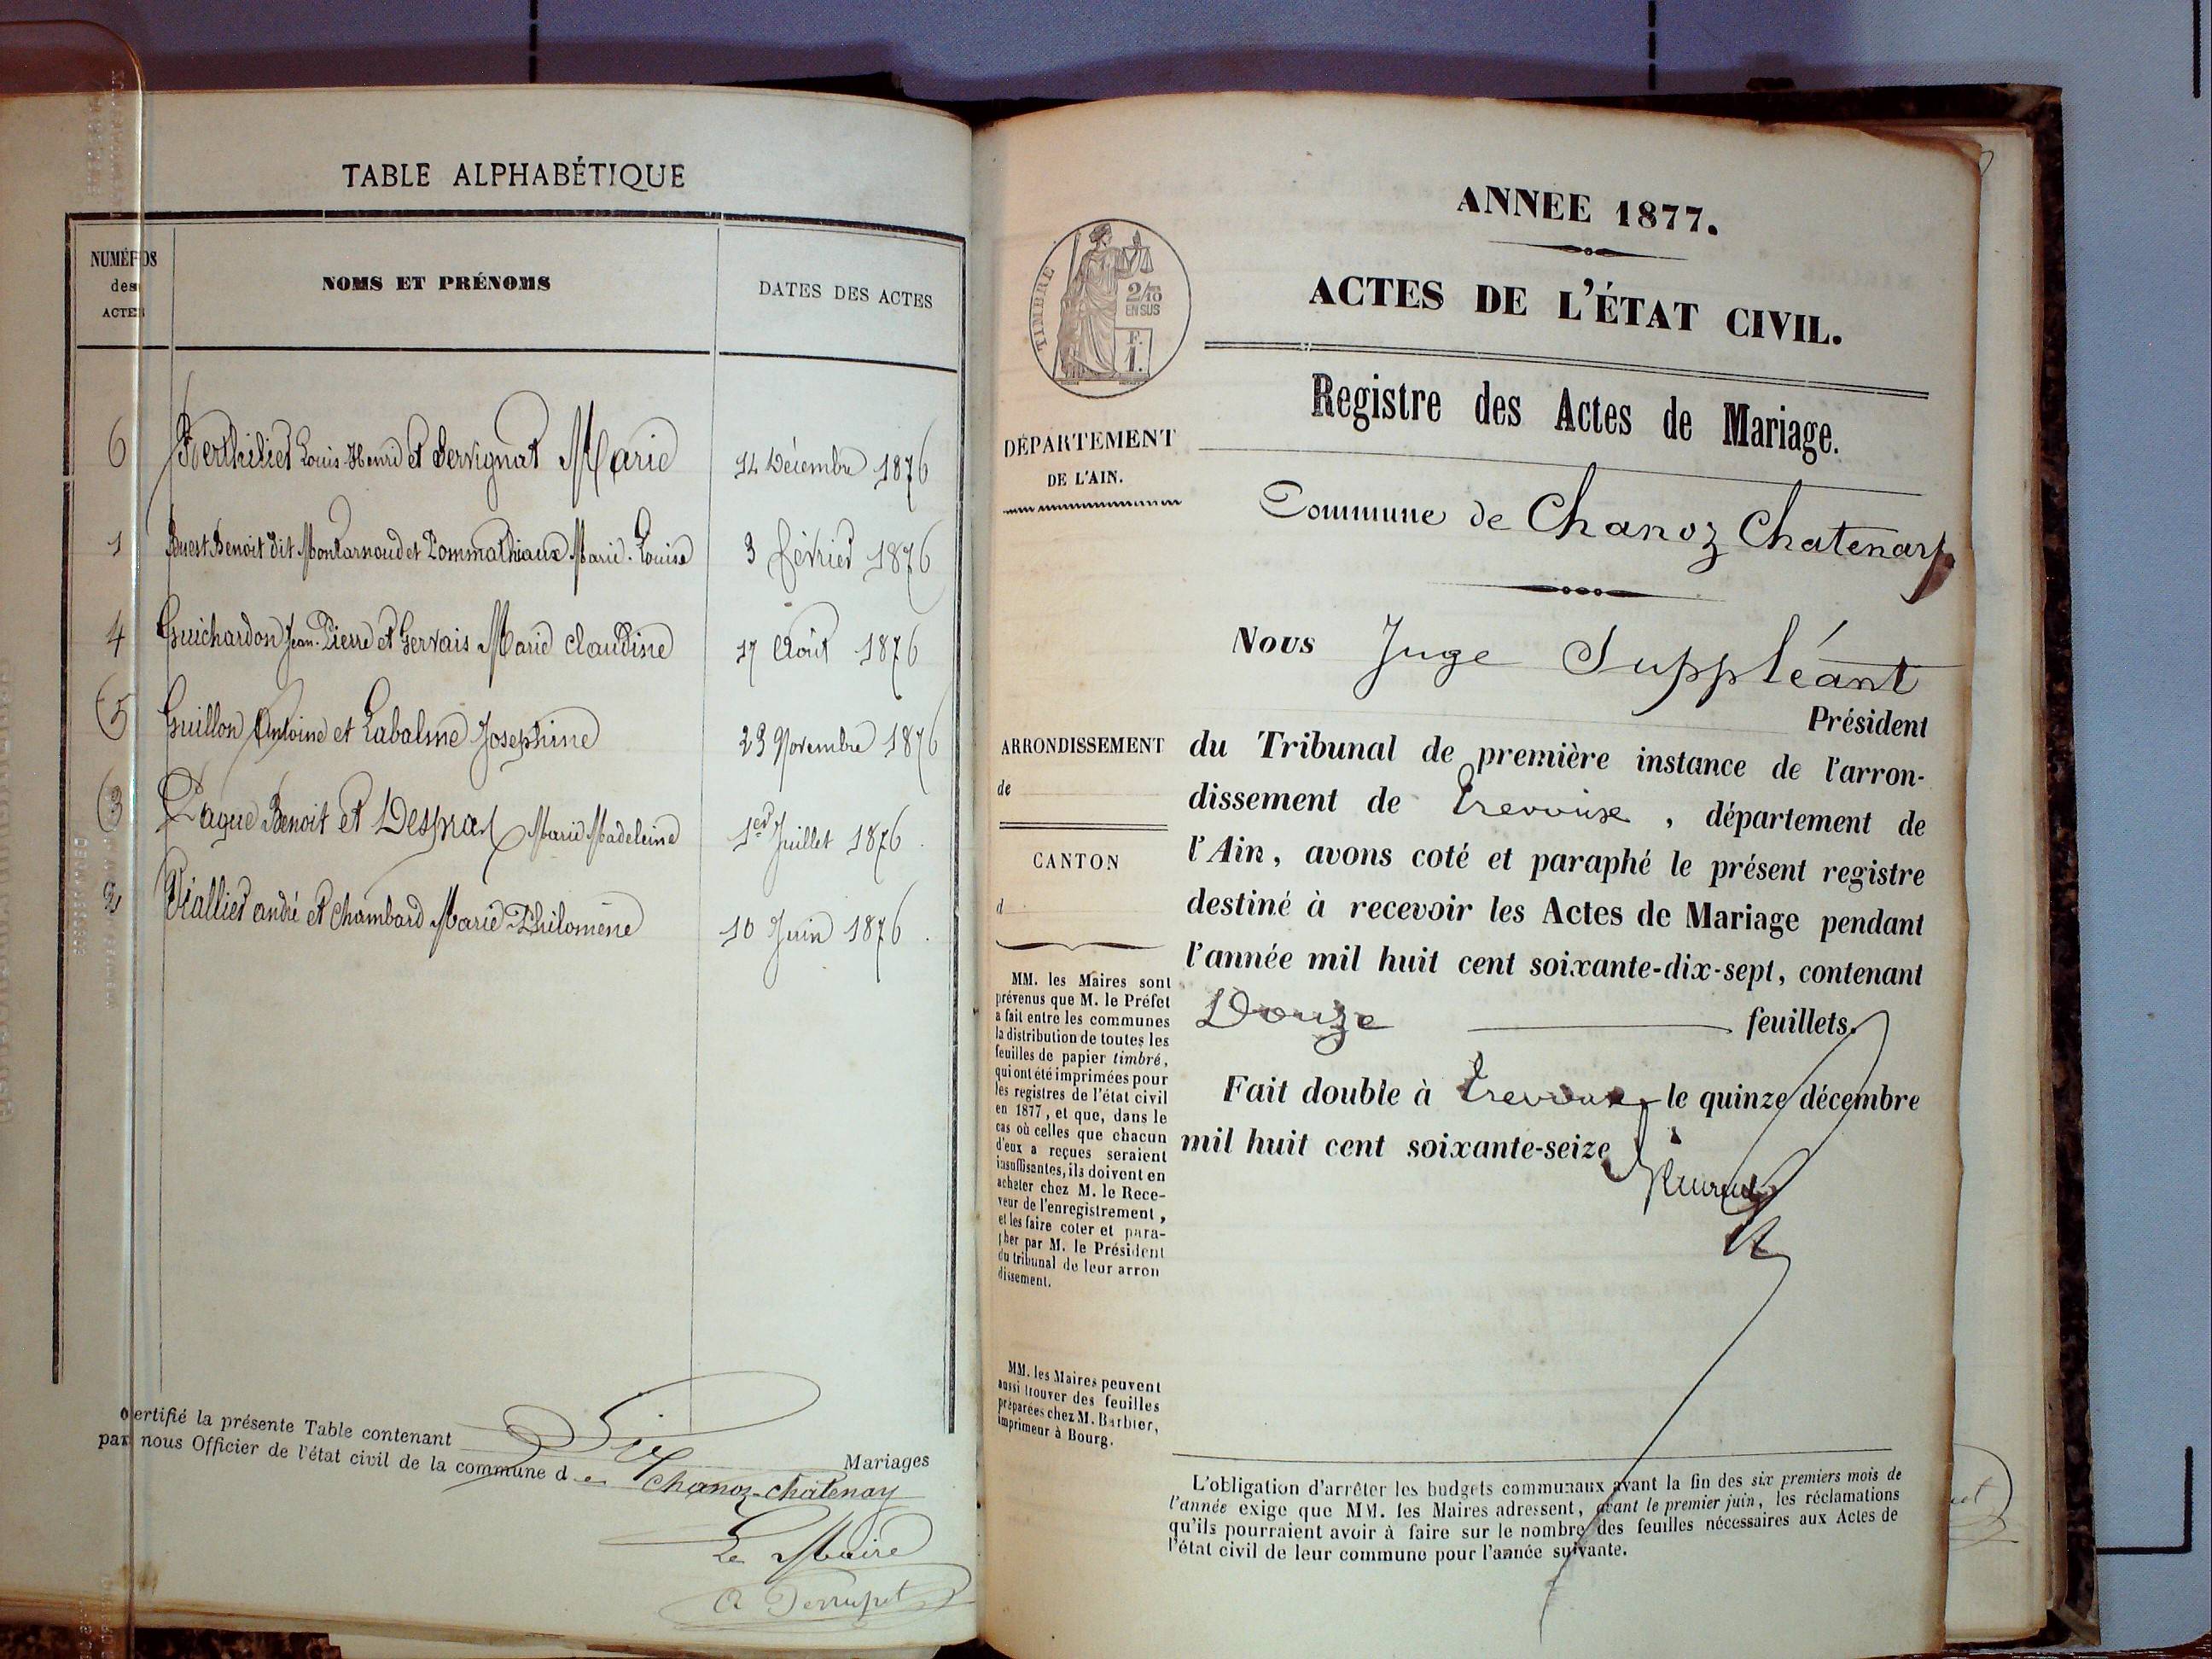 TABLE ALPHABÉTIQUE
NUMÉROS
des
ACTES
NOMS ET PRÉNOMS
DATES DES ACTES
6 Berthilier Louis-Henri et Servignat Marie 14 Décembre 1876
1 Buest Benoit dit Montarnoud et Pommathiaux Marie-Louise 3 février 1876
4 Guichardon Jean-Pierre et Gervais Marie Claudine 17 Août 1876
5 Guillon Antoine et Labalme Josephine 23 Novembre 1876
3 Pague Benoit et Marie Madeleine 1er Juillet 1876
2 Viallier andré et Chambard Marie Philomène 10 Juin 1876
Certifié la présente Table contenant Six Mariages
par nous Officier de l'état civil de la commune de Chanoz-châtenay
Le Maire
ANNÉE 1877.
TIMBRE
2/10
EN SUS
F.
1.
ACTES DE L'ÉTAT CIVIL.
Registre des Actes de Mariage.
DÉPARTEMENT
DE L'AIN.
Commune de Chanoz Chatenay
Nous Juge Suppléant
Président
ARRONDISSEMENT
de
CANTON
d
du Tribunal de première instance de l'arron-
dissement de Trevoux, département de
l'Ain, avons coté et paraphé le présent registre
destiné à recevoir les Actes de Mariage pendant
l'année mil huit cent soixante-dix-sept, contenant
Douze feuillets.
Fait double à Trevoux, le quinze décembre
mil huit cent soixante-seize
MM. les Maires sont
prévenus que M. le Préfet
a fait entre les communes
la distribution de toutes les
feuilles de papier timbré,
qui ont été imprimées pour
les registres de l'état civil
en 1877, et que, dans le
cas où celles que chacun
d'eux a reçues seraient
insuffisantes, ils doivent en
acheter chez M. le Rece-
veur de l'enregistrement,
et les faire coter et para-
pher par M. le Président
du tribunal de leur arron
dissement.
MM. les Maires peuvent
aussi trouver des feuilles
préparées chez M. Barbier,
imprimeur à Bourg.
L'obligation d'arrêter les budgets communaux avant la fin des six premiers mois de
l'année exige que MM. les Maires adressent, avant le premier juin, les réclamations
qu'ils pourraient avoir à faire sur le nombre des feuilles nécessaires aux Actes de
l'état civil de leur commune pour l'année suivante.